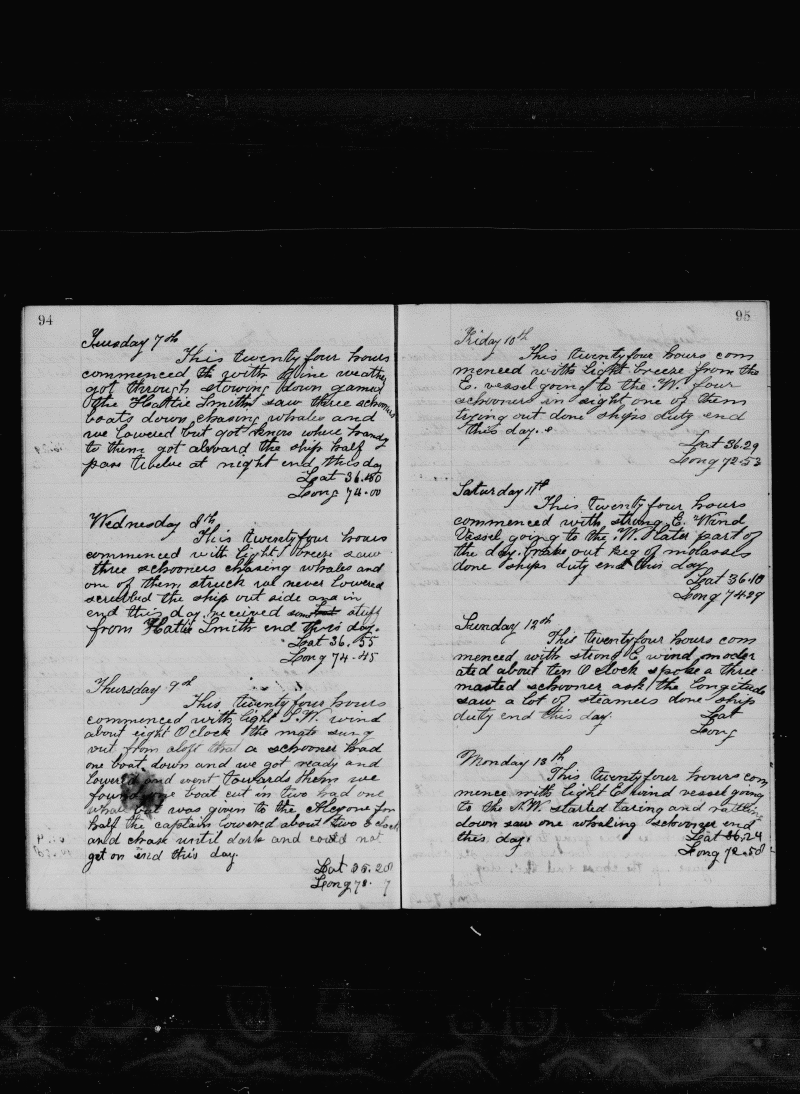 94
Tuesday 7th
This twenty four hours
commenced with fine weather
got through stowing down gamed
the Hattie Smith saw three schooners
boats down chasing whales and
we lowered but got know where handy
to them got aboard the ship half
pass twelve at night end this day
Lat 36.40
Long 74.00
Wednesday 8th
This twenty four hours
commenced with light breeze saw
three schooners chasing whales and
one of them struck we never lowered
scrubed the ship out side and in
end this day received some stuff
from Hattie Smith end this day.
Lat 36.55
Long 74.45
Thursday 9th
This twenty four hours
commenced with light S.W. wind
about eight O clock the mate sung
out from aloft that a schooner had
one boat down and we got ready and
lowered and went towards them we
found one boat cut in two had one
whale was given to the Alcyone for
half the captain lowered about two O clock
and chask until dark and could not
get on end this day.
Lat 35.28
Long 7 . 7
95
Friday 10th
This twenty four hours com
menced with light breeze from the
E. vessel going to the W. four
schooners in sight one of them
trying out done ships duty end
this day.
Lat 36.29
Long 72.53
Saturday 11th
This twenty four hours
commenced with strong E. Wind
Vessel going to the W. Later part of
the day. brake out keg of molasses
done ships duty end this day
Lat 36.10
Long 74.29
Sunday 12th
This twenty four hours com
menced with strong E. wind moder
ated about ten O clock spoke a three
masted schooner ask the Longitude
saw a lot of steamers done ship
duty end this day.
Lat
Long
Monday 13th
This twenty four hours com
mence with light E wind vessel going
to the N.W. started taring and rattling
down saw one whaling schooner end
this day.
Lat 36.24
Long 72.58